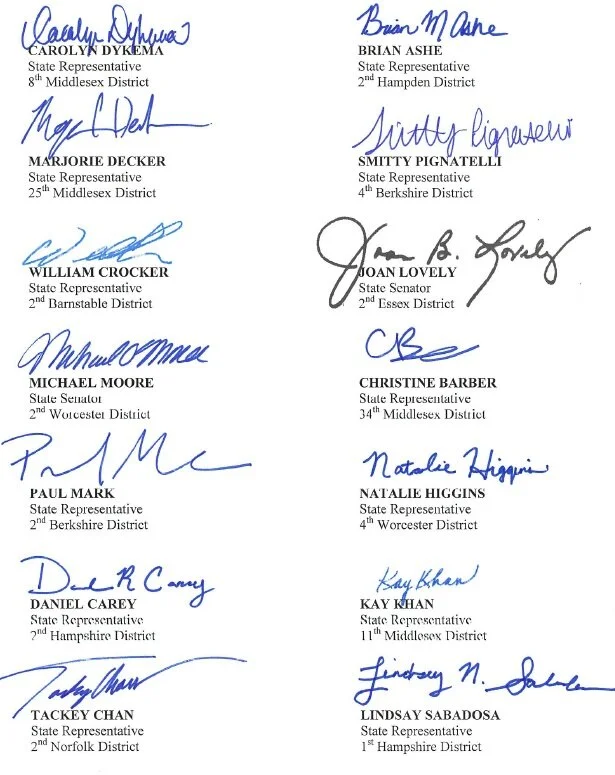 Carolyn Dykema
CAROLYN DYKEMA
State Representative
8th Middlesex District
Brian M Ashe
BRIAN ASHE
State Representative
2nd Hampden District
MARJORIE DECKER
State Representative
25th Middlesex District
Smitty Pignatelli
SMITTY PIGNATELLI
State Representative
4th Berkshire District
WILLIAM CROCKER
State Representative
2nd Barnstable District
Joan B. Lovely
JOAN LOVELY
State Senator
2nd Essex District
Michael O Moore
MICHAEL MOORE
State Senator
2nd Worcester District
CHRISTINE BARBER
State Representative
34th Middlesex District
PAUL MARK
State Representative
2nd Berkshire District
Natalie Higgins
NATALIE HIGGINS
State Representative
4th Worcester District
Daniel R Carey
DANIEL CAREY
State Representative
2nd Hampshire District
Kay Khan
KAY KHAN
State Representative
11th Middlesex District
Tackey Chan
TACKEY CHAN
State Representative
2nd Norfolk District
Lindsay N. Sabadosa
LINDSAY SABADOSA
State Representative
1st Hampshire District